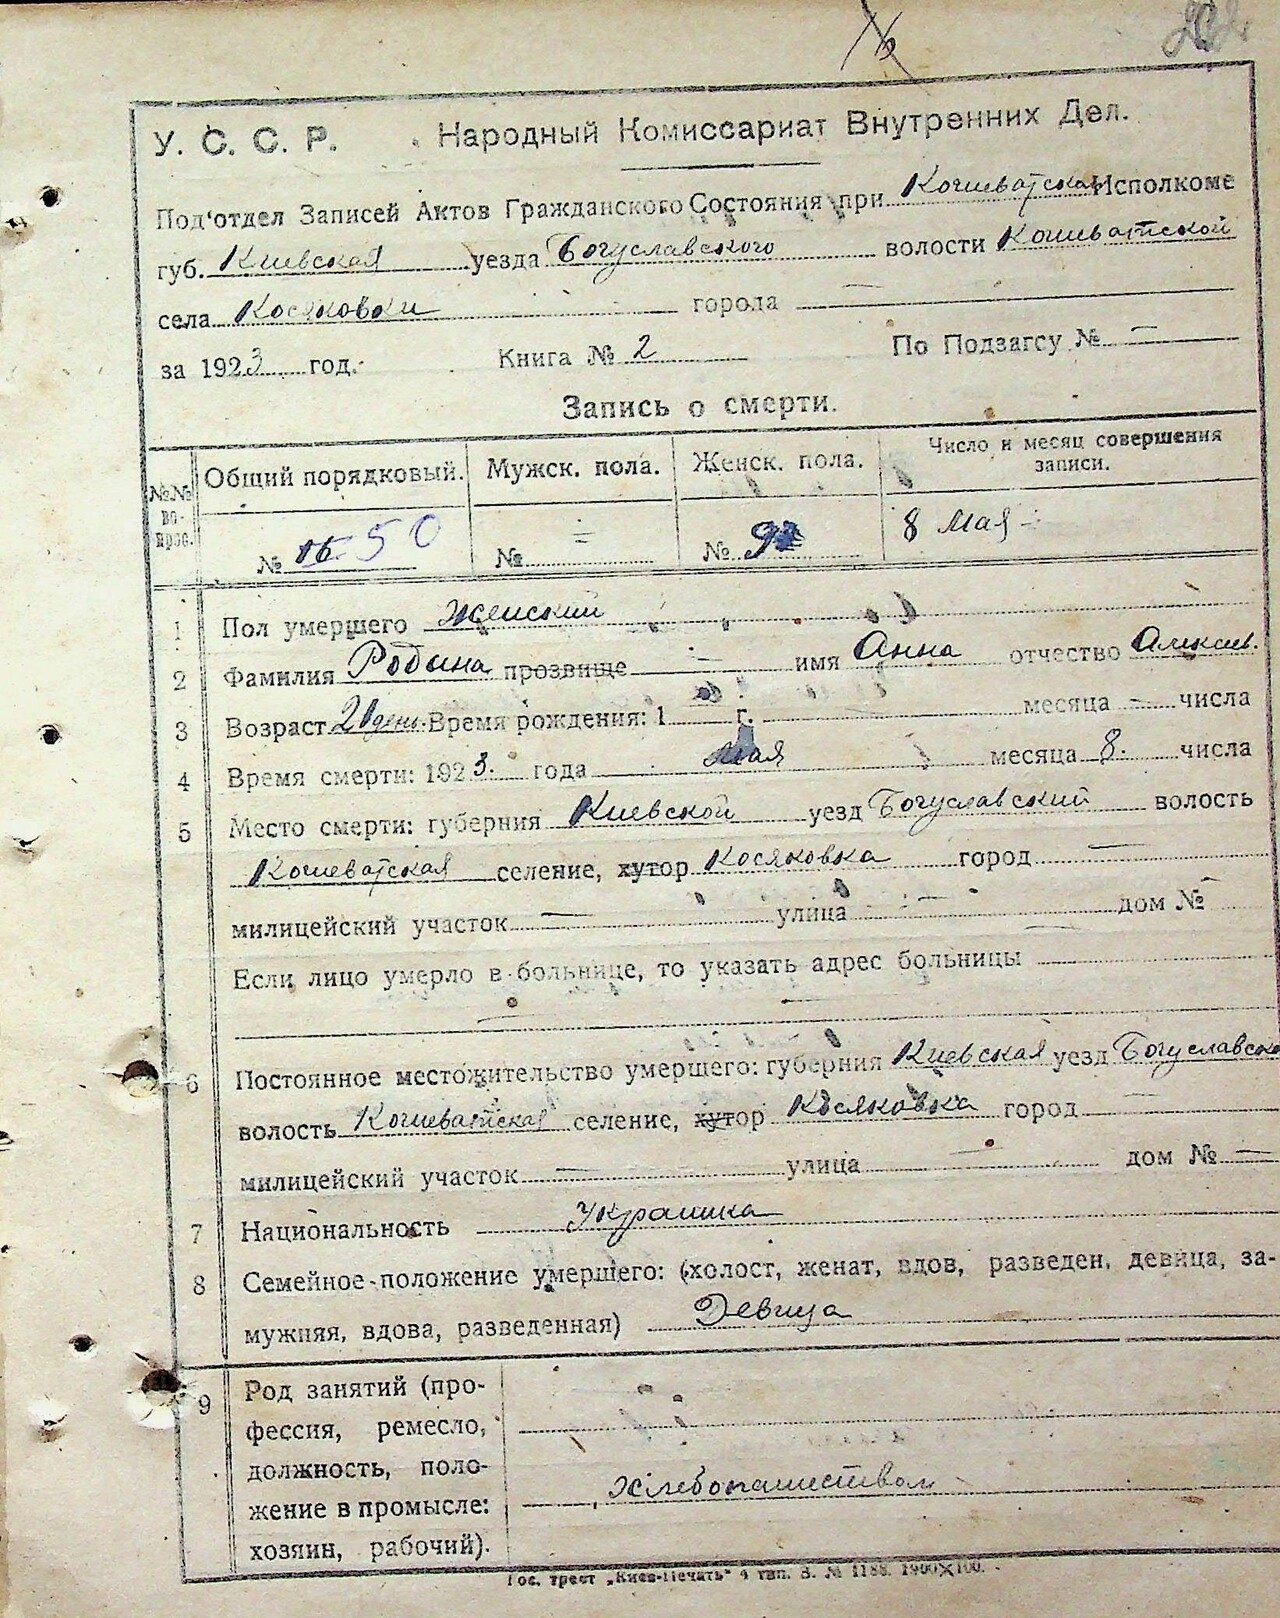 У. С. С. Р. Народный Комиссариат Внутренних Дел.
Под'отдел Записей Актов Гражданского Состояния при Кошеватском Исполкоме
губ. Киевская уезда Богуславского волости Кошеватской
села Косяковки города —
за 1923 год. Книга № 2 По Подзагсу № —
Запись о смерти.
№№ вопрос. Общий порядковый. Мужск. пола. Женск. пола. Число и месяц совершения записи.
№ 50 № — № 8 Мая
1 Пол умершего Женский
2 Фамилия Родина прозвище — имя Анна отчество Алексеев.
3 Возраст 21 день Время рождения: 1 г. месяца — числа
4 Время смерти: 1923. года Мая месяца 8. числа
5 Место смерти: губерния Киевской уезд Богуславский волость
Кошеватская селение, хутор Косяковка город —
милицейский участок — улица — дом № —
Если лицо умерло в больнице, то указать адрес больницы —
—
6 Постоянное местожительство умершего: губерния Киевская уезд Богуславско
волость Кошеватская селение, хутор Косяковка город —
милицейский участок — улица — дом № —
7 Национальность Украинка
8 Семейное положение умершего: (холост, женат, вдов, разведен, девица, за-
мужняя, вдова, разведенная) Девица
9 Род занятий (про-
фессия, ремесло,
должность, поло-
жение в промысле: Хлебопашеством
хозяин, рабочий).
Гос. трест „Киев-Печать" 4 тип. З. № 1188. 1900×100.